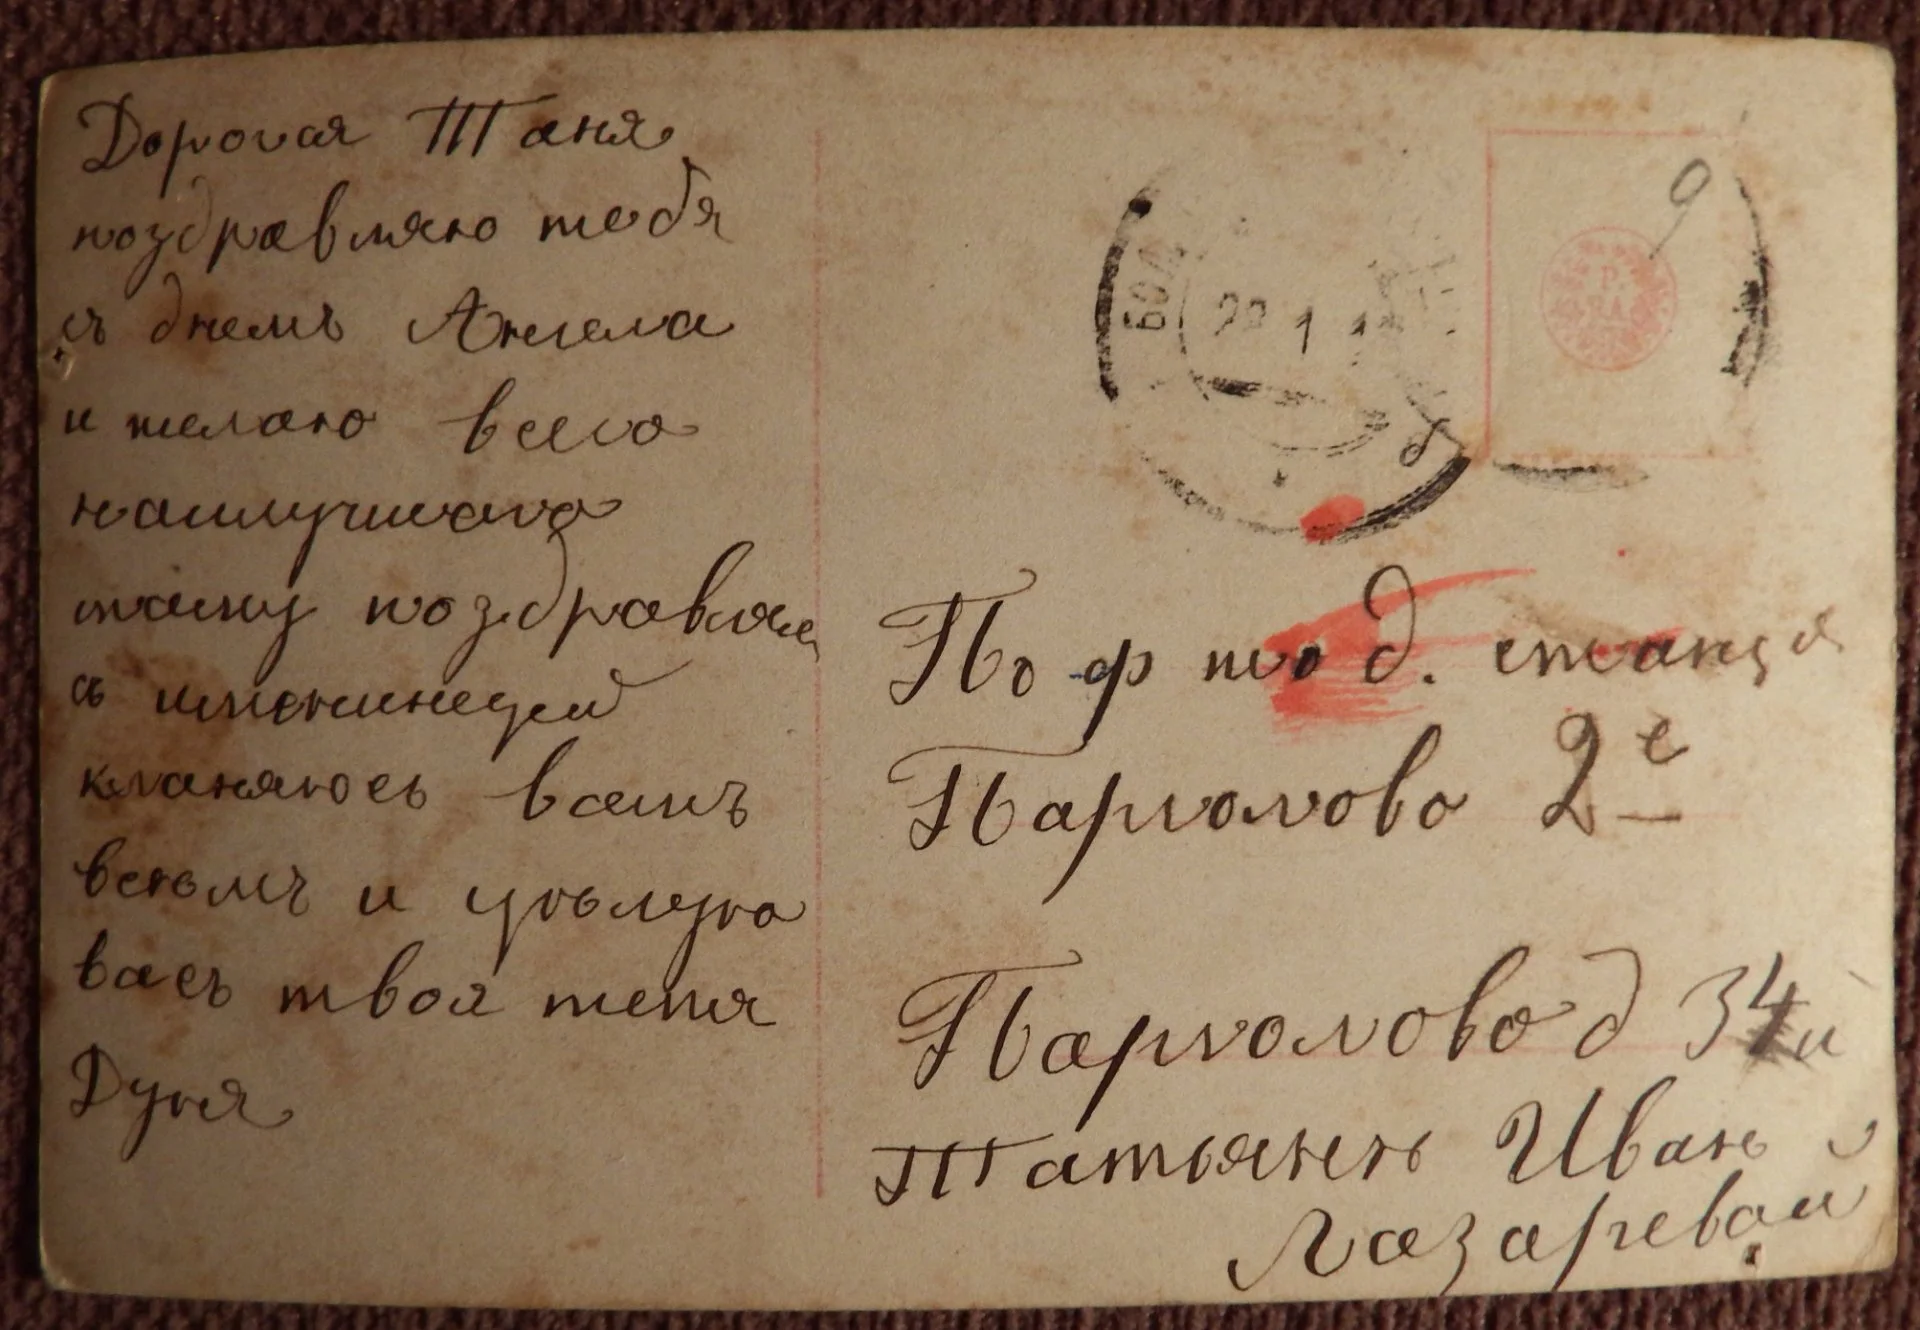 Дорогая Таня
поздравляю тебя
съ днемъ Ангела
и желаю всего
наилучшаго
маму поздравляю
съ имянинецей
кланяюсь вамъ
всѣмъ и цѣлую
васъ твоя тетя
Дуня
БОЛ
1
9
По ф жд. станция
Парголово 2е
Парголово д 34й
Татьянѣ Иван
Лазаревой